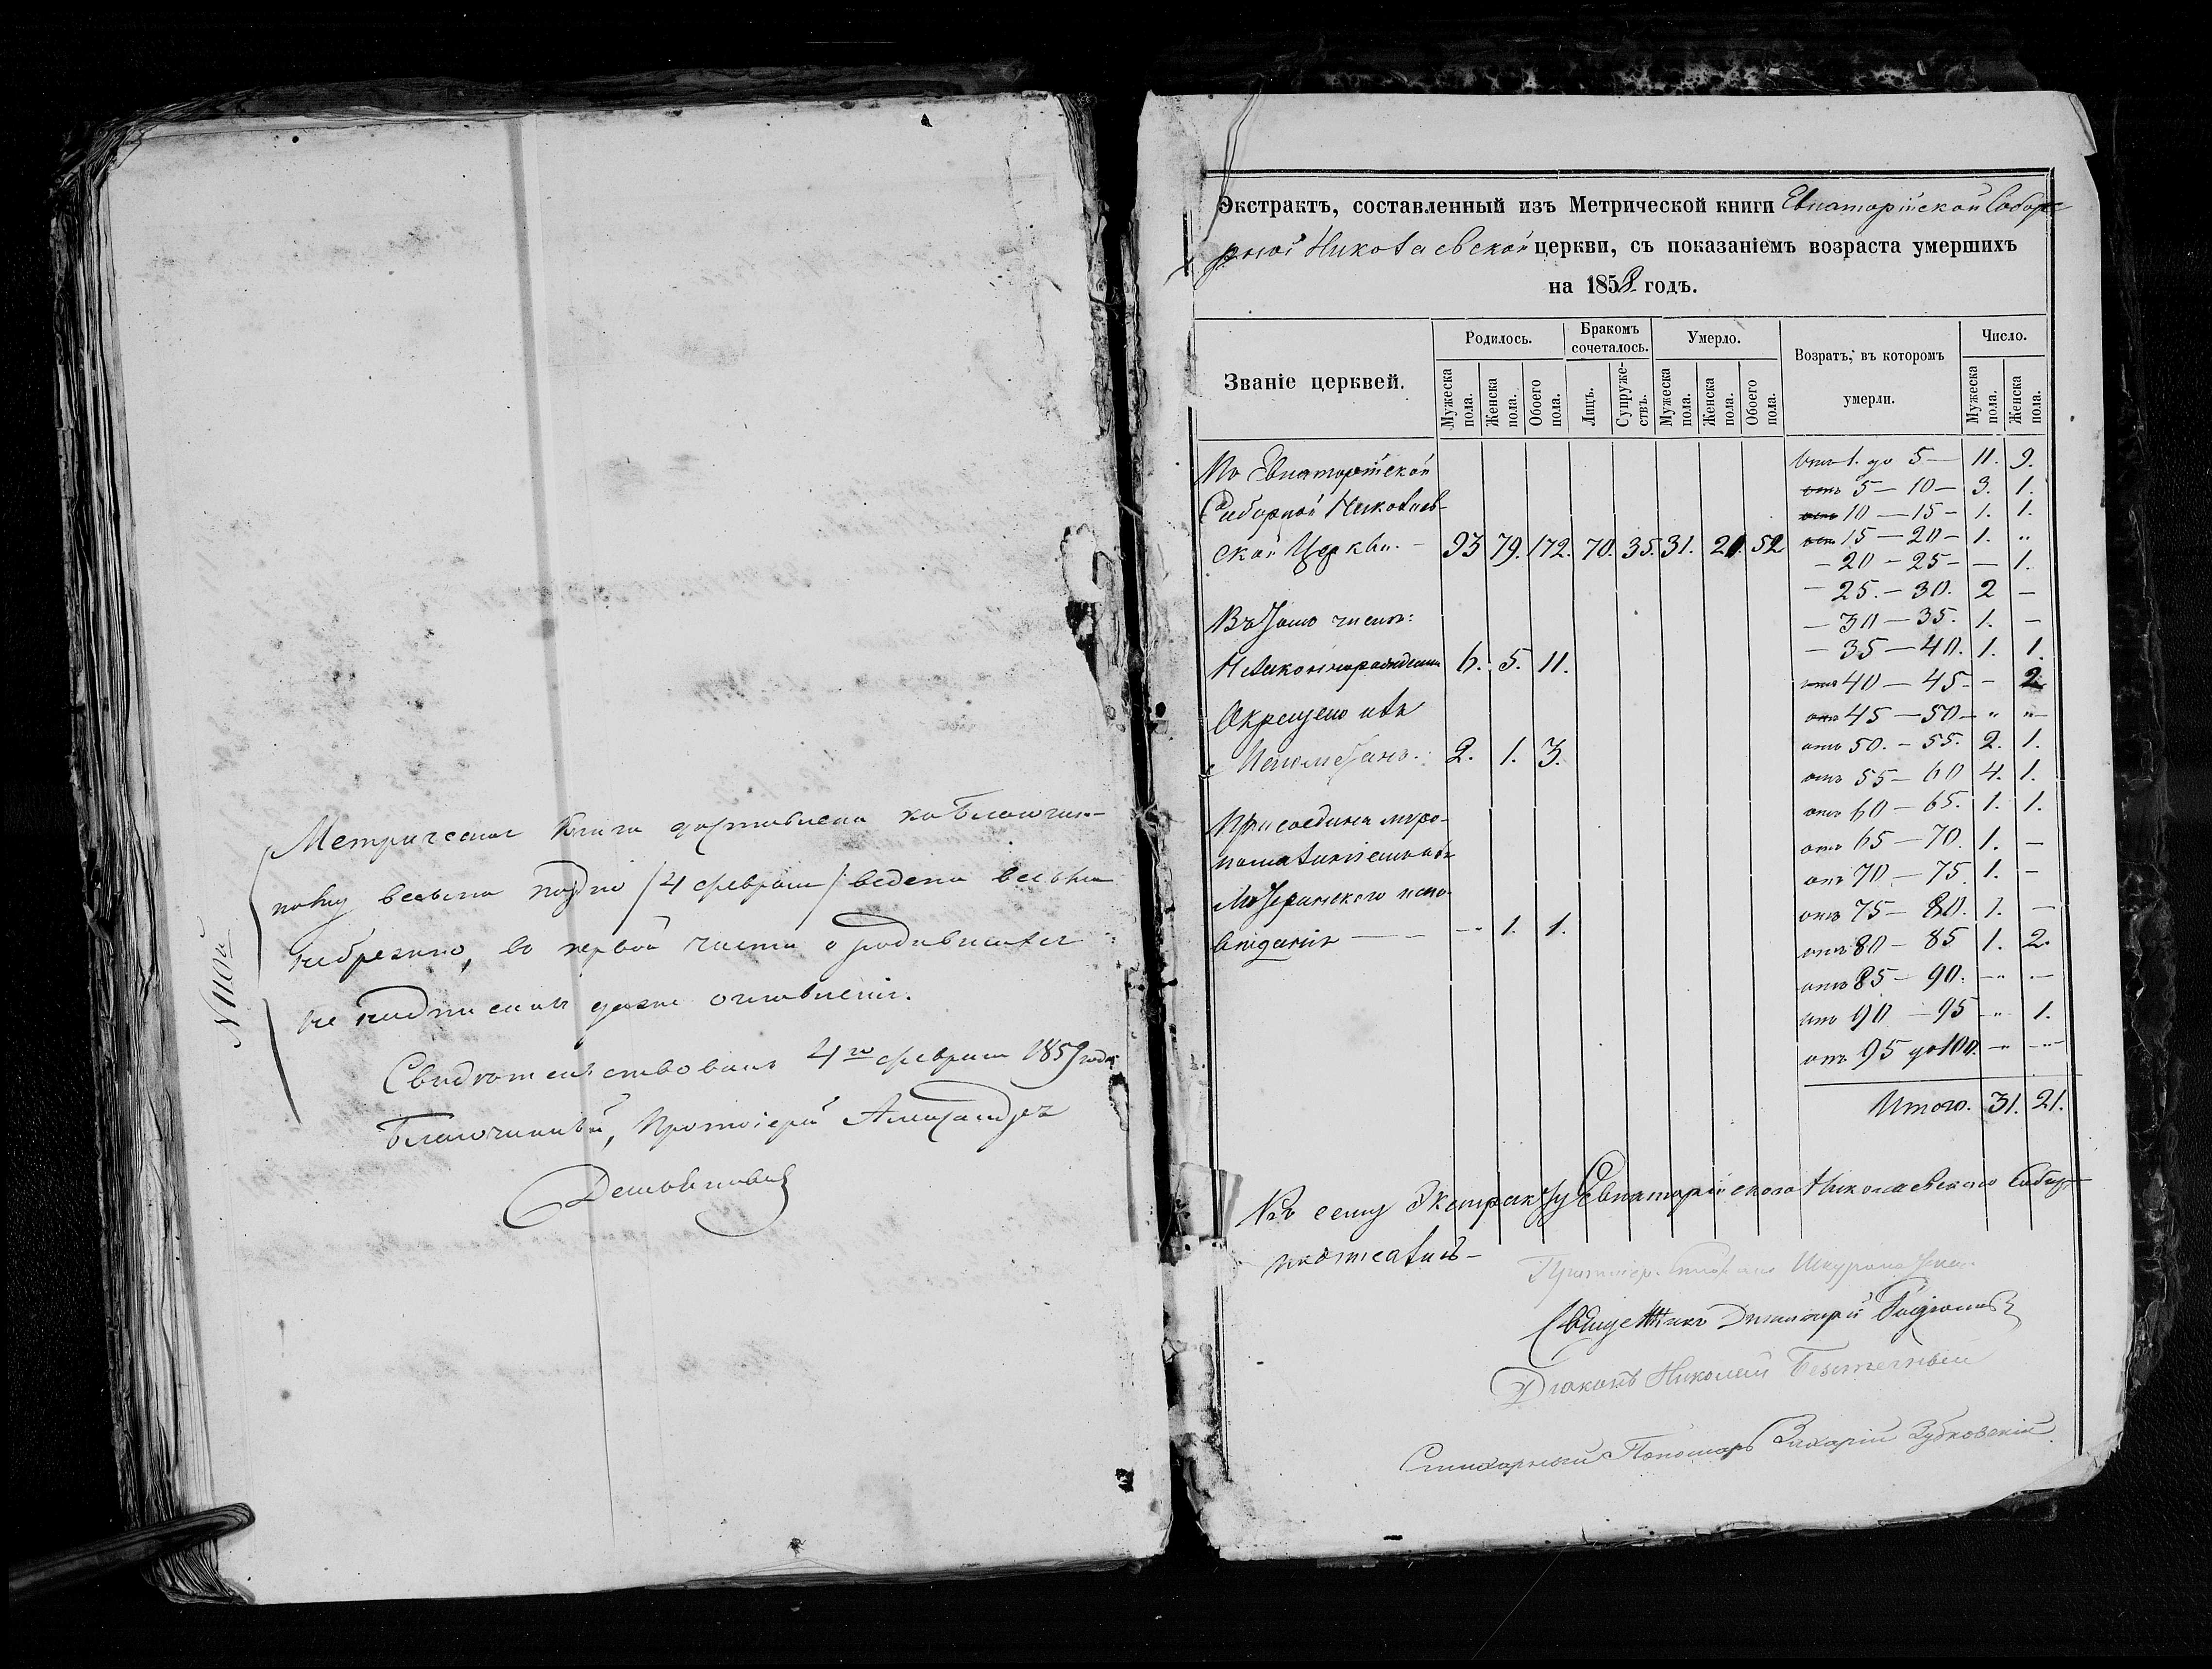 NНой
Метрическая книга доставлена къ Благочин-
ному весьма поздно /4 февраля/ ведена весьма
небрежно, во первой части о родившихся
не подписанъ даже
Свидѣтельствовалъ 4го февраля 1859 года
Благочинный, Протоіерей Александръ
Демьяновичъ
Экстрактъ, составленный изъ Метрической книги Евпаторійской Собор-
рной Николаевской церкви, съ показаніемъ возраста умершихъ
на 1858 годъ.
Званіе церквей.
Родилось.
Бракомъ сочеталось.
Умерло.
Возратъ, въ которомъ умерли.
Число.
Мужеска пола.
Женска пола.
Обоего пола.
Лицъ.
Супружествъ.
Мужеска пола.
Женска пола.
Обоего пола.
Мужеска пола.
Женска пола.
По Евпаторійской
Соборной Николаев-
ской Церкви. – 93 79. 172. 70. 35. 31. 21. 52
Въ томъ числѣ:
Незаконнорожденныхъ 6. 5. 11.
Окрещено изъ
Магометанъ. 2. 1. 3.
Присоединен миро-
помазаніемъ изъ
Лютеранскаго испо-
вѣданія — — -„ 1. 1.
Отъ 1. до 5 — 11. 9.
отъ 5 – 10 – 3. 1.
отъ 10 – 15 – 1. 1.
отъ 15 – 20 – 1. „
– 20 – 25 – — 1.
– 25. – 30. 2 –
– 30 – 35. 1. –
– 35 – 40. 1. 1.
отъ 40 – 45 – – 2
отъ 45 – 50 – „ „–
отъ 50. – 55. 2. 1.
отъ 55 – 60 4. 1.
отъ 60 – 65. 1. 1.
отъ 65 – 70. 1. –
отъ 70 – 75. 1. –
отъ 75 – 80. 1. –
отъ 80 – 85 1. 2.
отъ 85 – 90. –„ „–
отъ 90 – 95 –„ 1.
отъ 95 до 100. –„ –„–
Итого. 31. 21.
Къ сему Экстракту Евпаторійскаго Николаевскаго Собора
подписались –
Протоіер.
Священникъ Димитрій
Діаконъ Николай Безтечный
Стихарный Пономарь Захарій Зубковскій